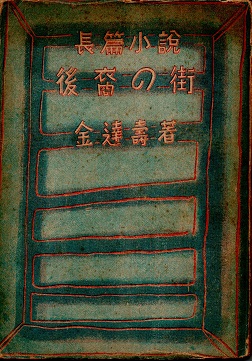 長篇小說
後裔の街
金達壽著